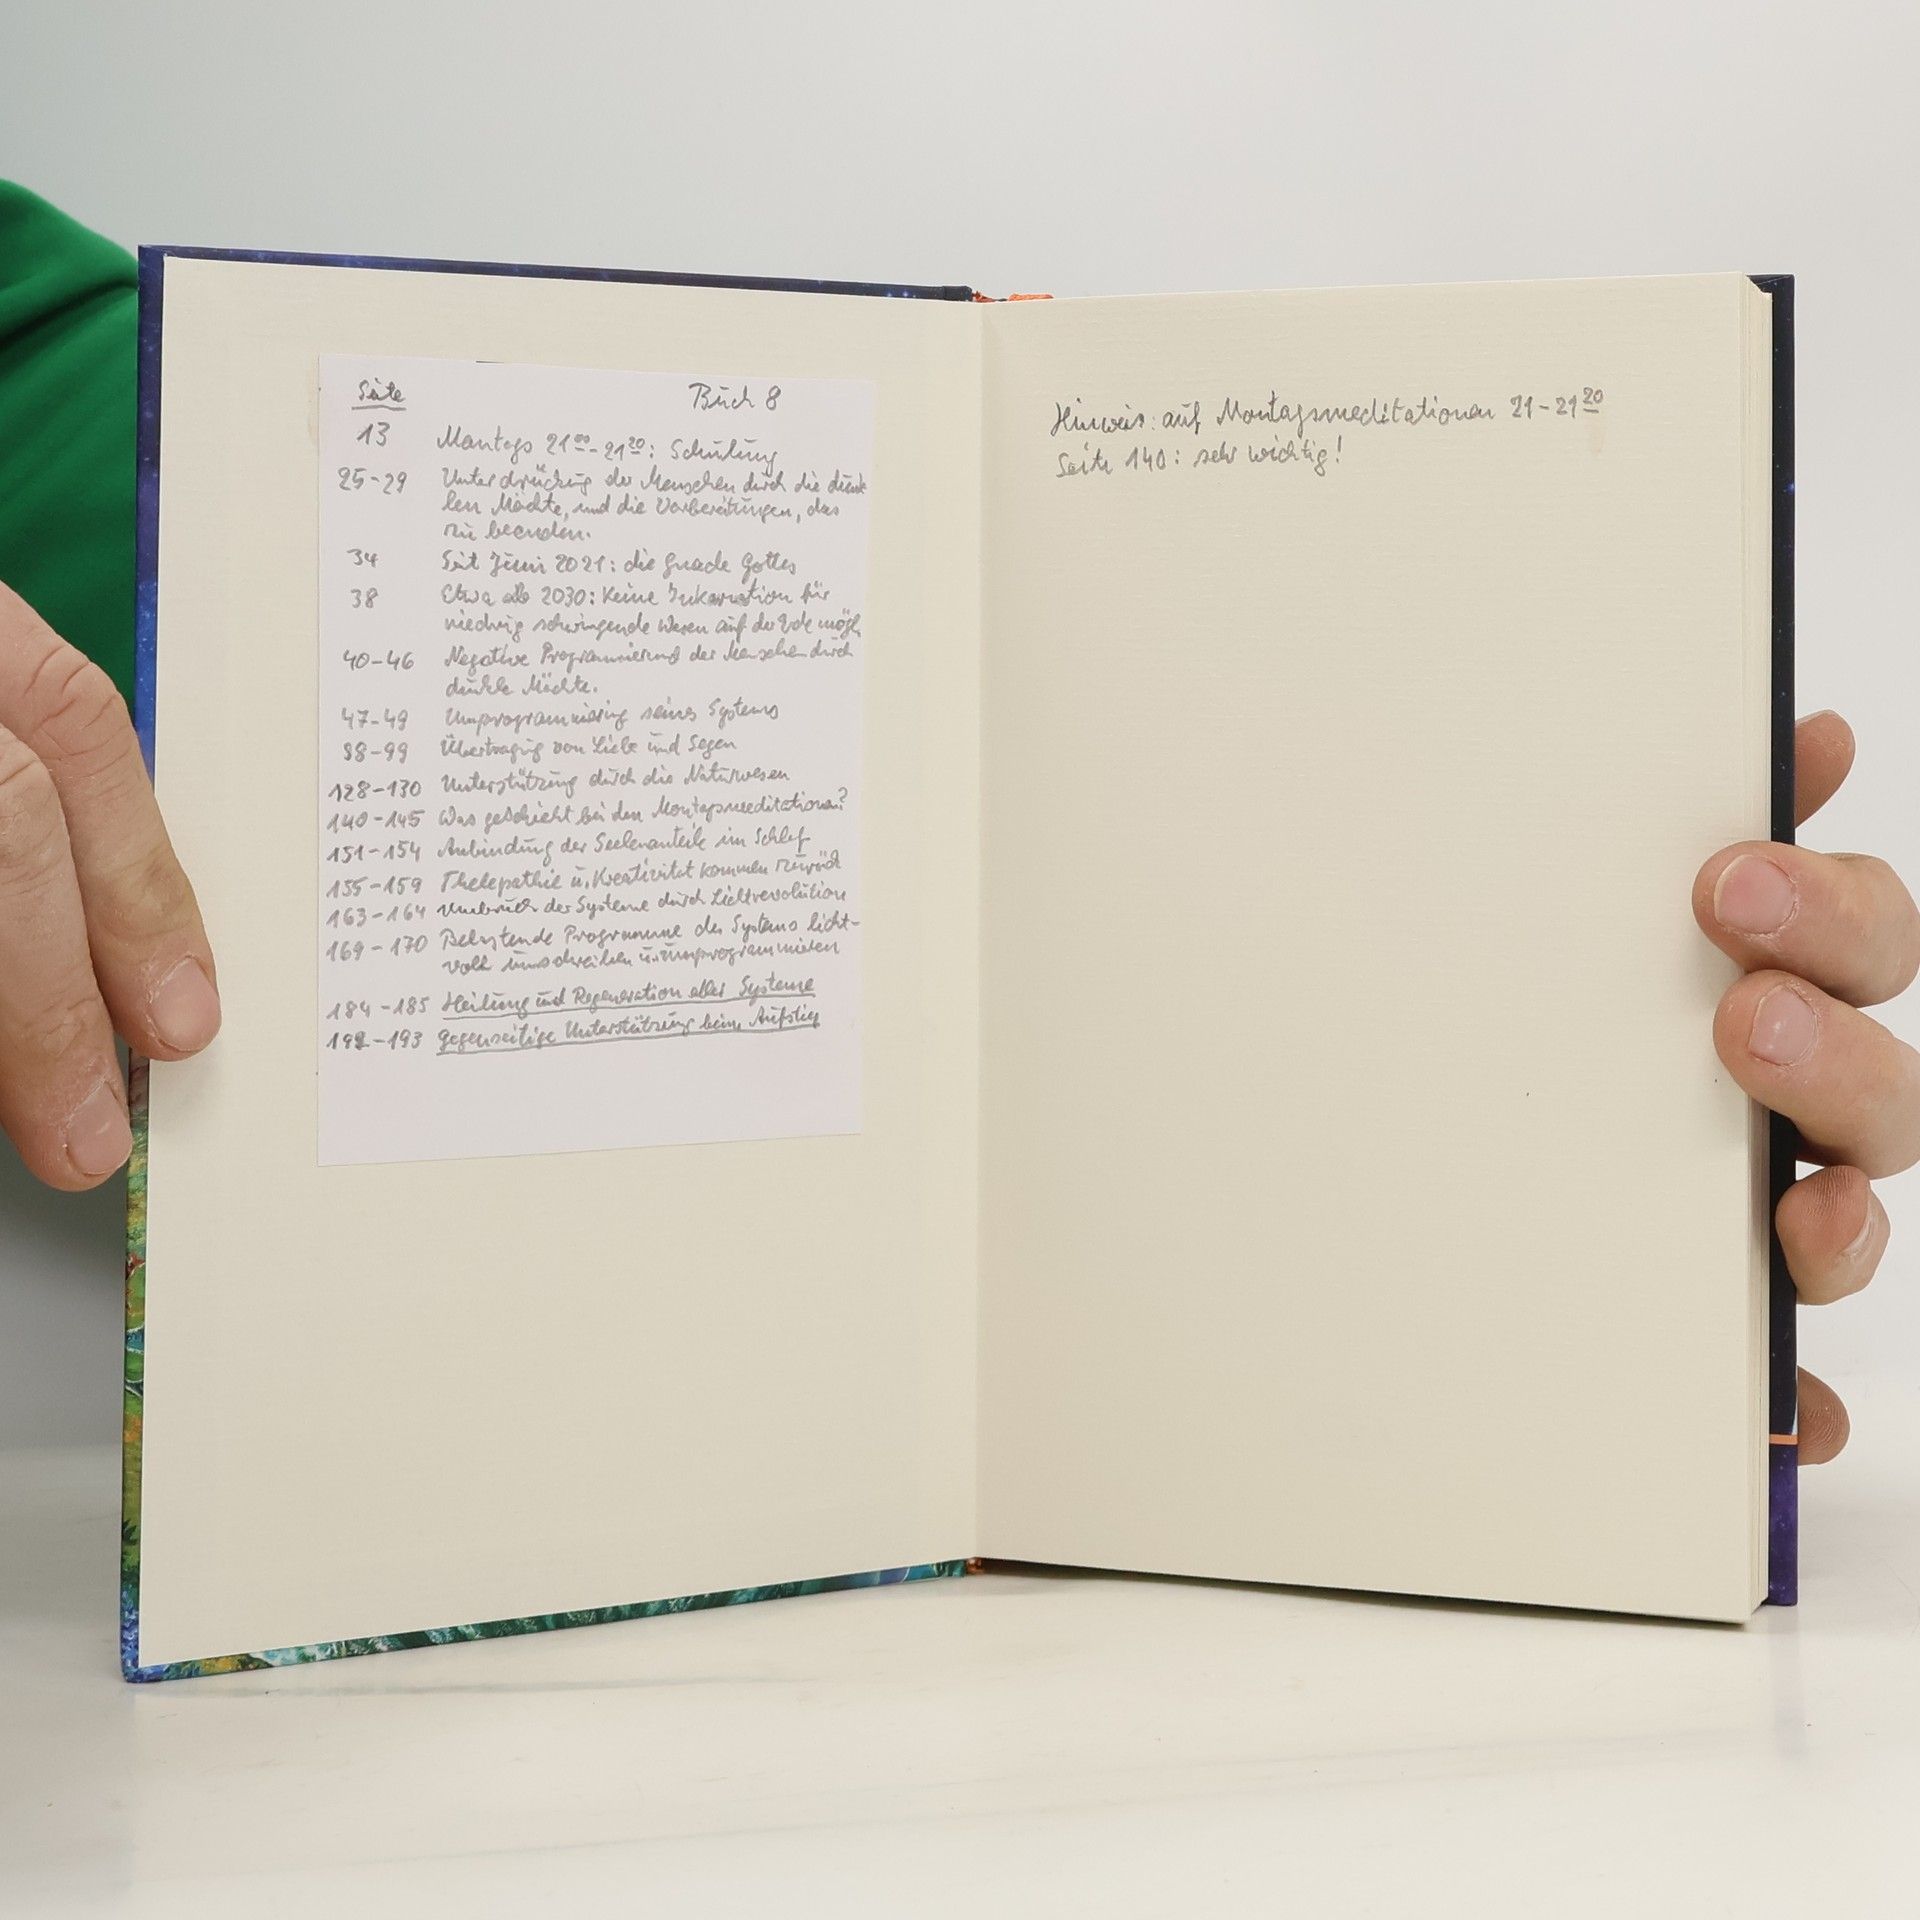 Seite Buch 8
13 Montags 21⁰⁰-21²⁰: Schulung
25-29 Unterdrückung der Menschen durch die dunk
len Mächte, und die Vorbereitungen, das
zu beenden.
34 Seit Juni 2021: die Gnade Gottes
38 Etwa ab 2030: Keine Inkarnation für
niedrig schwingende Wesen auf der Erde mögl.
40-46 Negative Programmierung der Menschen durch
dunkle Mächte.
47-49 Umprogrammierung seines Systems
98-99 Übertragung von Liebe und Segen
128-130 Unterstützung durch die Naturwesen
140-145 Was geschieht bei den Montagsmeditationen?
151-154 Anbindung der Seelenanteile im Schlaf
155-159 Thelepathie u. Kreativität kommen zurück
163-164 Umbruch der Systeme durch Lichtrevolution
169-170 Belastende Programme des Systems licht-
voll umschreiben u. umprogrammieren
184-185 Heilung und Regeneration aller Systeme
192-193 Gegenseitige Unterstützung beim Aufstieg
Hinweis: auf Montagsmeditationen 21-21²⁰
Seite 140: sehr wichtig!